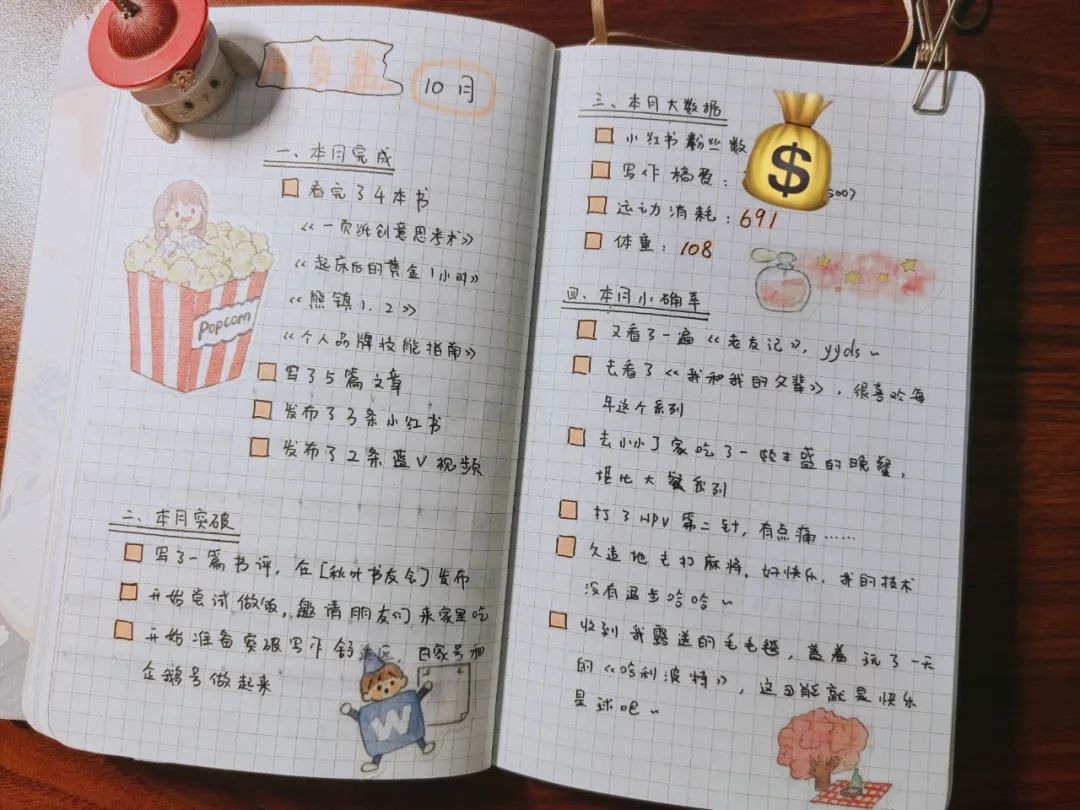 月复盘
10月
一、本月完成
看完了4本书
《一页纸创意思考术》
《起床后的黄金1小时》
《熊镇1.2》
《个人品牌技能指南》
写了5篇文章
发布了3条小红书
发布了2条蓝V视频
Popcorn
二、本月突破
写了一篇书评，在[秋叶书友会]发布
开始尝试做饭，邀请朋友们来家里吃
开始准备突破写作舒适区，百家号和
企鹅号做起来
W
三、本月大数据
小红书粉丝数
写作稿费：
500)
运动消耗：691
体重：108
$
四、本月小确幸
又看了一遍《老友记》，yyds～
去看了《我和我的父辈》，很喜欢每
年这个系列
去小小丁家吃了一顿丰盛的晚餐，
堪比大餐系列
打了HPV第二针，有点痛……
久违地去打麻将，好快乐，我的技术
没有退步哈哈～
收到我露送的毛毛毯，盖着玩了一天
的《哈利波特》，这可能就是快乐
星球吧～